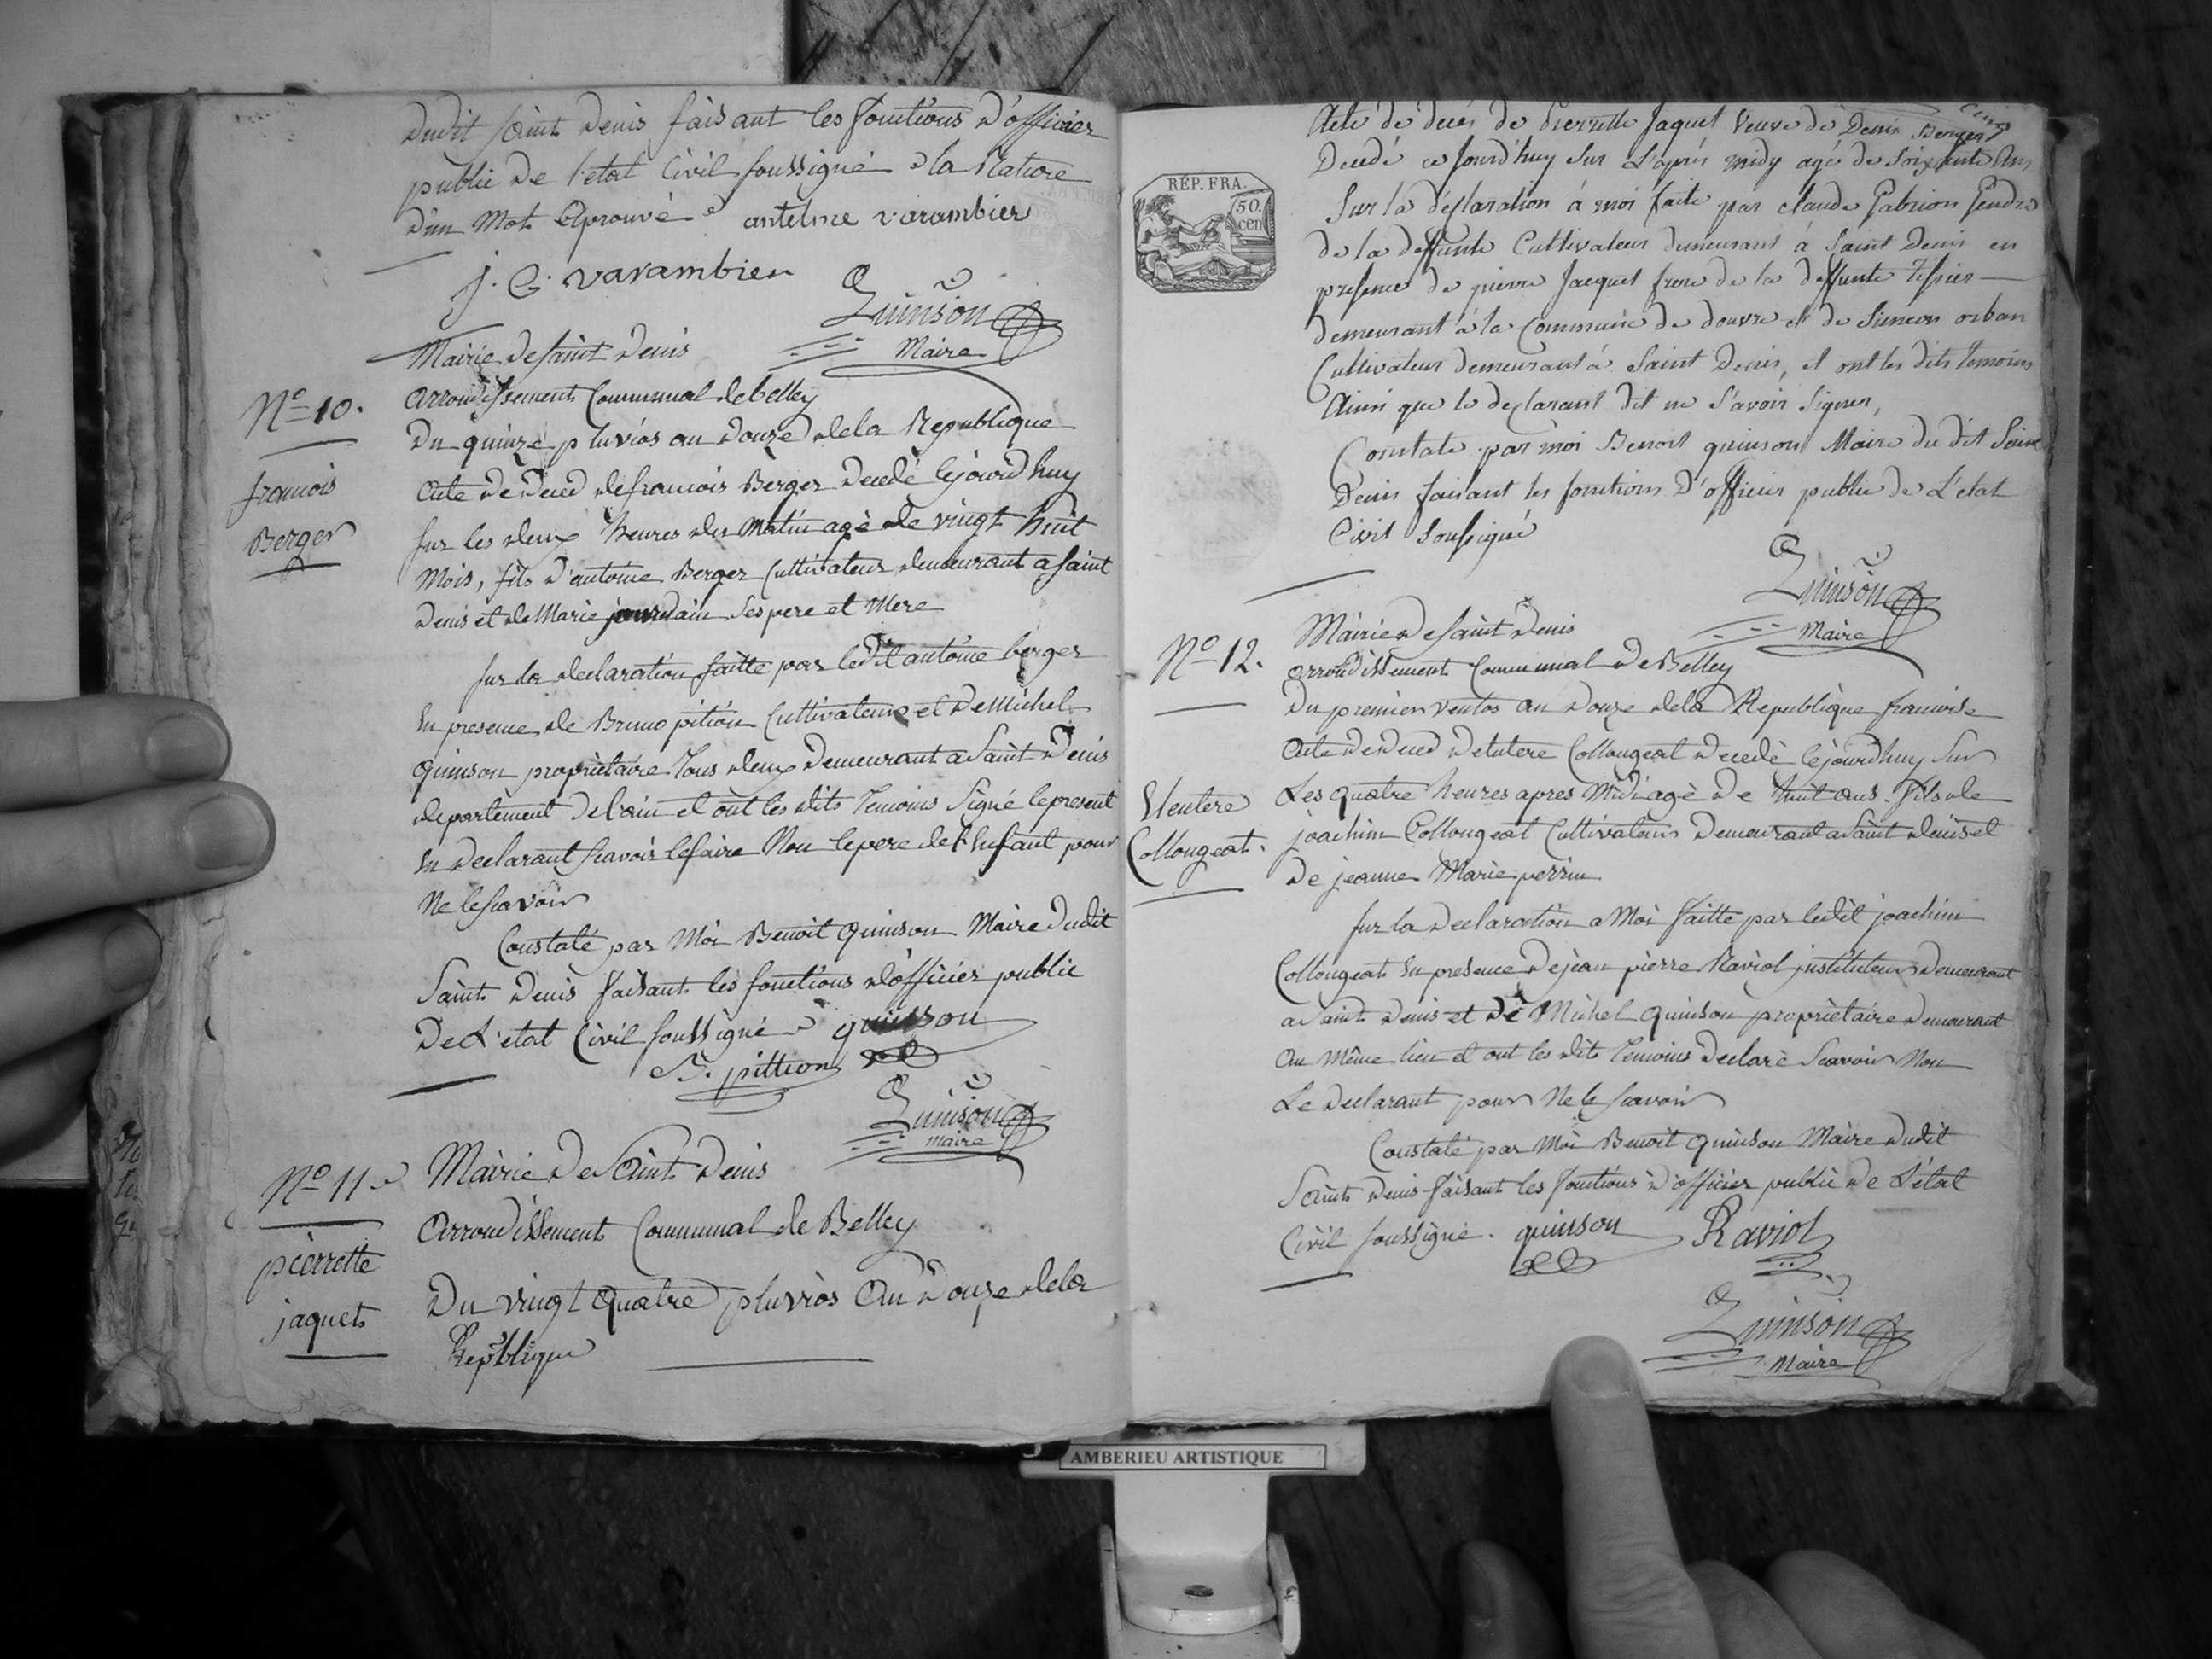 dudit saint Denis faisant les fonctions d'officier
public de l'etat Civil soussigné la Rature
d'un Mot Aprouvé antelme varambier
J. C. varambier
Quinson
Maire
Mairie de saint Denis
Nº 10.
arrondissement Communal de belley
Du quinze pluvios an douze de la Republique
francois
Berger
acte de deced de francois Berger decedé cejourd'huy
sur les deux heures du matin agé de vingt huit
mois, fils d'antoine Berger Cultivateur demeurant a saint
Denis et de Marie jourdain ses pere et Mere
sur la declaration faitte par ledit antoine berger
En presence de Bruno pition Cultivateur et de Michel
quinson propriètaire tous deux demeurant a Saint Denis
departement de l'ain et ont les dits temoins signé le present
En declarant scavoir le faire Non le pere de l'Enfant pour
Ne le scavoir
Constaté par Moi Benoit quinson Maire dudit
Saint Denis faisant les fonctions d'officier public
De L'etat Civil soussigné quinson
B. pittion
Quinson
maire
Nº 11
Mairie de Saint Denis
arrondissement Communal de Belley
pierrette
jaquet
Du vingt quatre pluviòs an douze de la
Republique
RÉP. FRA.
50.
cen
Acte de decés de Pierrette Jaquet Veuve de Denis Berger
Decedé ce jourd'huy sur L'aprés midy agé de soixante Ans
Sur la déclaration á moi faite par claude Gabrion Gendre
de la deffunte Cultivateur demeurant á Saint Denis en
presence de pierre Jacquet frere de la deffunte Tissier
demeurant á la Commune de douvre et de Simeon orban
Cultivateur demeurant á Saint Denis, et ont les dits temoins
Ainsi que le declarant dit ne Savoir Signer,
Constate par moi Benoit quinson Maire du dit Saint
Denis faisant les fonctions D'officier public de L'etat
Civil Soussigné
Quinson
Maire
Nº 12.
Mairie de saint Denis
arrondissement Communal de Belley
Du premier ventos an douze de la Republique francoise
Eleutere
Collongeat.
acte de deced Deleutere Collongeat decedé cejourd'huy sur
Les quatre heures apres Midi agè de huit ans. fils de
joachim Collongeat Cultivateur Demeurant a saint denis et
De jeanne Marie perrin
sur la declaration a Moi faitte par ledit joachim
Collongeat En presence de jean pierre Raviol instituteur Demeurant
a saint Denis et de Michel quinson propriètaire demeurant
au même lieu et ont les dits temoins declaré scavoir Non
Le declarant pour Ne le scavoir
Constaté par Moi Benoit quinson Maire dudit
Saint Denis faisant les fonctions d'officier public de L'état
Civil soussigné. quinson Raviol
Quinson
Maire
AMBERIEU ARTISTIQUE